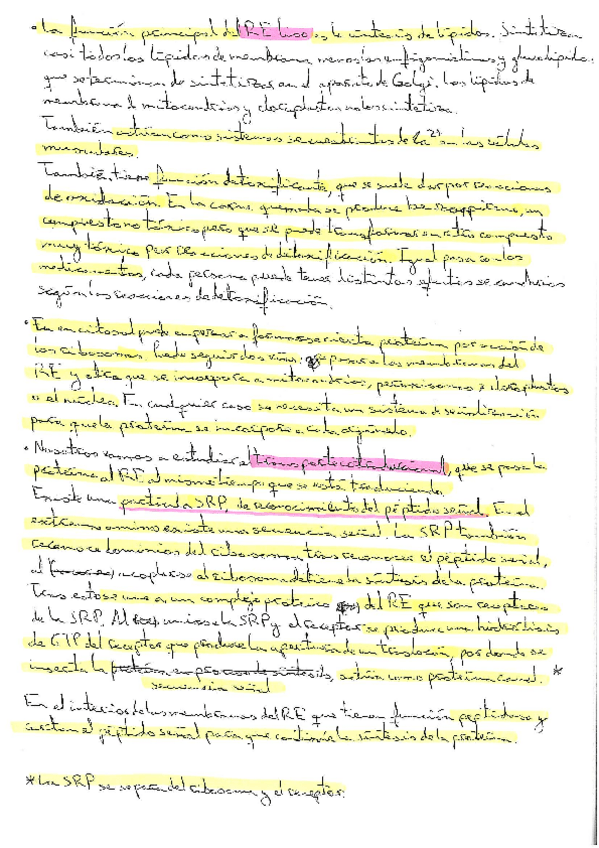 • La función principal del RE liso es la síntesis de lípidos. Sintetizan
casi todos los lípidos de membrana, menos los esfingomielinas y glucolípidos,
que se terminan de sintetizar en el aparato de Golgi. Los lípidos de
membrana de mitocondrias y cloroplastos no los sintetiza.
También actúan como sistemas secuestrantes de Ca²⁺ en las células
musculares.
También tiene función detoxificante, que se suele dar por reacciones
de oxidación. En la carne quemada se produce benzopireno, un
compuesto no tóxico pero que se puede transformar en otro compuesto
muy tóxico por reacciones de detoxificación. Igual pasa con los
medicamentos, cada persona puede tener distintos efectos secundarios
según las reacciones de detoxificación.
• En en citosol puede empezar a formarse cierta proteína por acción de
los ribosomas. Puede seguir dos vías: que pase a las membranas del
RE y otra que se incorpora a mitocondrias, peroxisomas o cloroplastos
o el núcleo. En cualquier caso se necesita un sistema de señalización
para que la proteína se incorpore a cada orgánulo.
• Nosotros vamos a estudiar el transporte cotraduccional, que se pasa la
proteína al RE al mismo tiempo que se está traduciendo.
Existe una partícula SRP, de reconocimiento del péptido señal. En el
extremo amino existe una secuencia señal. La SRP también
reconoce dominios del ribosoma tras reconocer el péptido señal,
al acoplarse al ribosoma detiene la síntesis de la proteína.
Tras esto se une a un complejo proteico del RE que son receptores
de la SRP. Al unirse la SRP y el receptor se produce una hidrólisis
de GTP del receptor que produce la apertura de un translocón, por donde se
inserta la proteína en proceso de síntesis, actúa como proteína canal. *
secuencia señal
En el interior de las membranas del RE que tienen función peptidasa y
cortan el péptido señal para que continúe la síntesis de la proteína.
* La SRP se separa del ribosoma y el receptor.